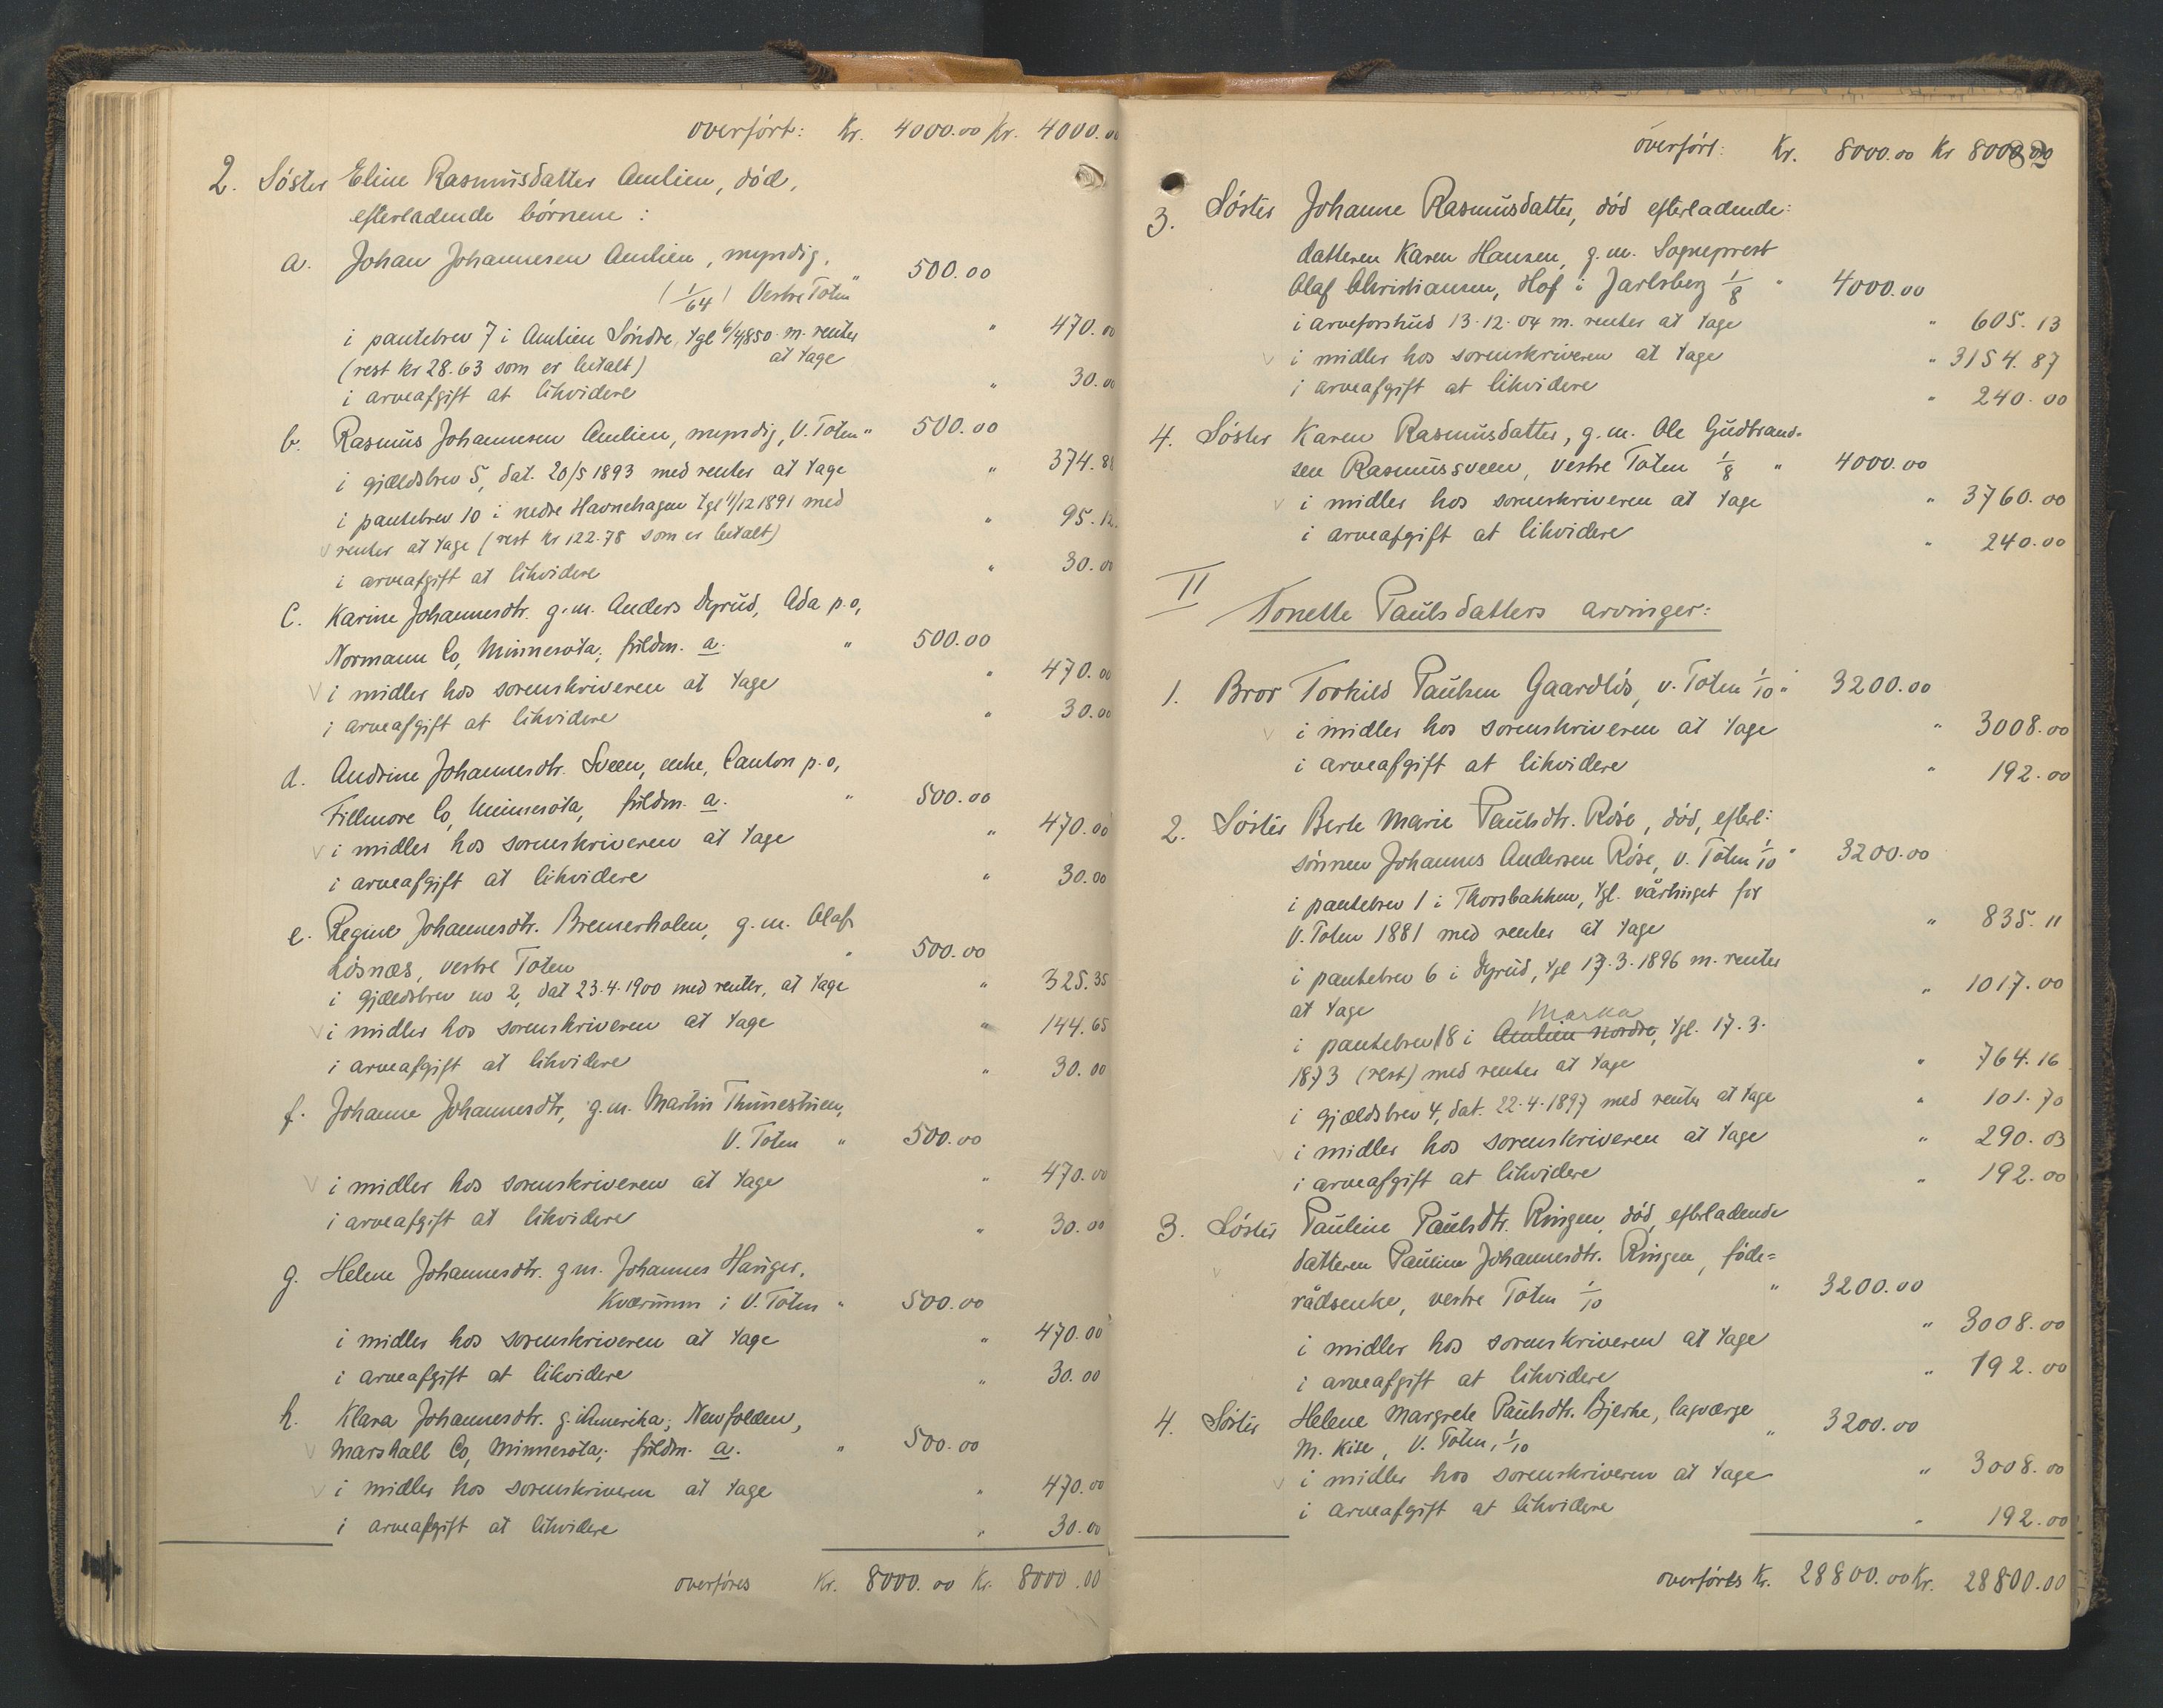 overført: Kr. 4000.00 Kr. 4000.00
2. Søster Eline Rasmusdatter Amlien, død,
efterladende børnene:
a. Johan Johannesen Amlien, myndig,
(1/64) Vestre Toten " 500.00
i pantebrev 7 i Amlien Søndre, tgl 6/4 1850 m. renter " 470.00
(rest kr 28.63 som er betalt) at tage
i arveafgift at likvidere " 30.00
b. Rasmus Johannesen Amlien, myndig, V. Toten " 500.00
i gjældsbrev 5, dat. 20/5 1893 med renter at tage " 374.88
i pantebrev 10 i nedre Havnehagen tgl 1/12 1891 med
renter at tage (rest kr 122.78 som er betalt) " 95.12
i arveafgift at likvidere " 30.00
c. Karine Johannesdtr. g.m. Anders Dyrud, Ada p.o,
Normann Co, Minnesota; fuldm. a. " 500.00
i midler hos sorenskriveren at tage " 470.00
i arveafgift at likvidere " 30.00
d. Andrine Johannesdtr. Sveen, enke, Canton p.o,
Fillmore Co, Minnesota, fuldm. a. " 500.00
i midler hos sorenskriveren at tage " 470.00
i arveafgift at likvidere " 30.00
e. Regine Johannesdtr. Bremerholm, g.m. Olaf
Løsnæs, vestre Toten " 500.00
i gjældsbrev no 2, dat 23.4.1900 med renter, at tage " 325.35
i midler hos sorenskriveren at tage " 144.65
i arveafgift at likvidere " 30.00
f. Johanne Johannesdtr, g.m. Martin Thunestuen,
V. Toten " 500.00
i midler hos sorenskriveren at tage " 470.00
i arveafgift at likvidere " 30.00
g. Helene Johannesdtr. g.m. Johannes Hauger,
Kværnum i V. Toten " 500.00
i midler hos sorenskriveren at tage " 470.00
i arveafgift at likvidere " 30.00
h. Klara Johannesdtr. g. i Amerika; Newfolden,
Marshall Co, Minnesota; fuldm. a. " 500.00
i midler hos sorenskriveren at tage " 470.00
i arveafgift at likvidere " 30.00
overføres Kr. 8000.00 Kr. 8000.00
overført: Kr. 8000.00 Kr 8000.00
3. Søster Johanne Rasmusdatter, død efterladende:
datteren Karen Hansen, g.m. Sogneprest
Olaf Christiansen, Hof i Jarlsberg 1/8 " 4000.00
i arveforskud 13.12.04 m. renter at tage " 605.13
i midler hos sorenskriveren at tage " 3154.87
i arveafgift at likvidere " 240.00
4. Søster Karen Rasmusdatter, g.m. Ole Gudbrand=
sen Rasmussveen, vestre Toten 1/8 " 4000.00
i midler hos sorenskriveren at tage " 3760.00
i arveafgift at likvidere " 240.00
II
Tonette Paulsdatters arvinger:
1. Bror Torkild Paulsen Gaardløs, v. Toten 1/10 " 3200.00
i midler hos sorenskriveren at tage " 3008.00
i arveafgift at likvidere " 192.00
2. Søster Berte Marie Paulsdtr. Røse, død, efterl:
sønnen Johannes Andersen Røse, v. Toten 1/10 " 3200.00
i pantebrev 1 i Thorsbakken, tgl. vårtinget for
V. Toten 1881 med renter at tage " 835.11
i pantebrev 6 i Dyrud, tgl 17.3.1896 m. renter
at tage " 1017.00
Marka
i pantebrev 18 i Amlien nordre, tgl. 17.3.
1873 (rest) med renter at tage " 764.16
i gjældsbrev 4, dat. 22.4.1897 med renter at tage " 101.70
i midler hos sorenskriveren at tage " 290.03
i arveafgift at likvidere " 192.00
3. Søster Pauline Paulsdtr. Ringen, død, efterladende
datteren Pauline Johannesdtr. Ringen, føde=
rådsenke, vestre Toten 1/10 " 3200.00
i midler hos sorenskriveren at tage " 3008.00
i arveafgift at likvidere " 192.00
4. Søster Helene Margrete Paulsdtr. Bjerke, lagværge
M. Kise, V. Toten, 1/10 " 3200.00
i midler hos sorenskriveren at tage " 3008.00
i arveafgift at likvidere " 192.00
overføres Kr. 28800.00 Kr. 28800.00